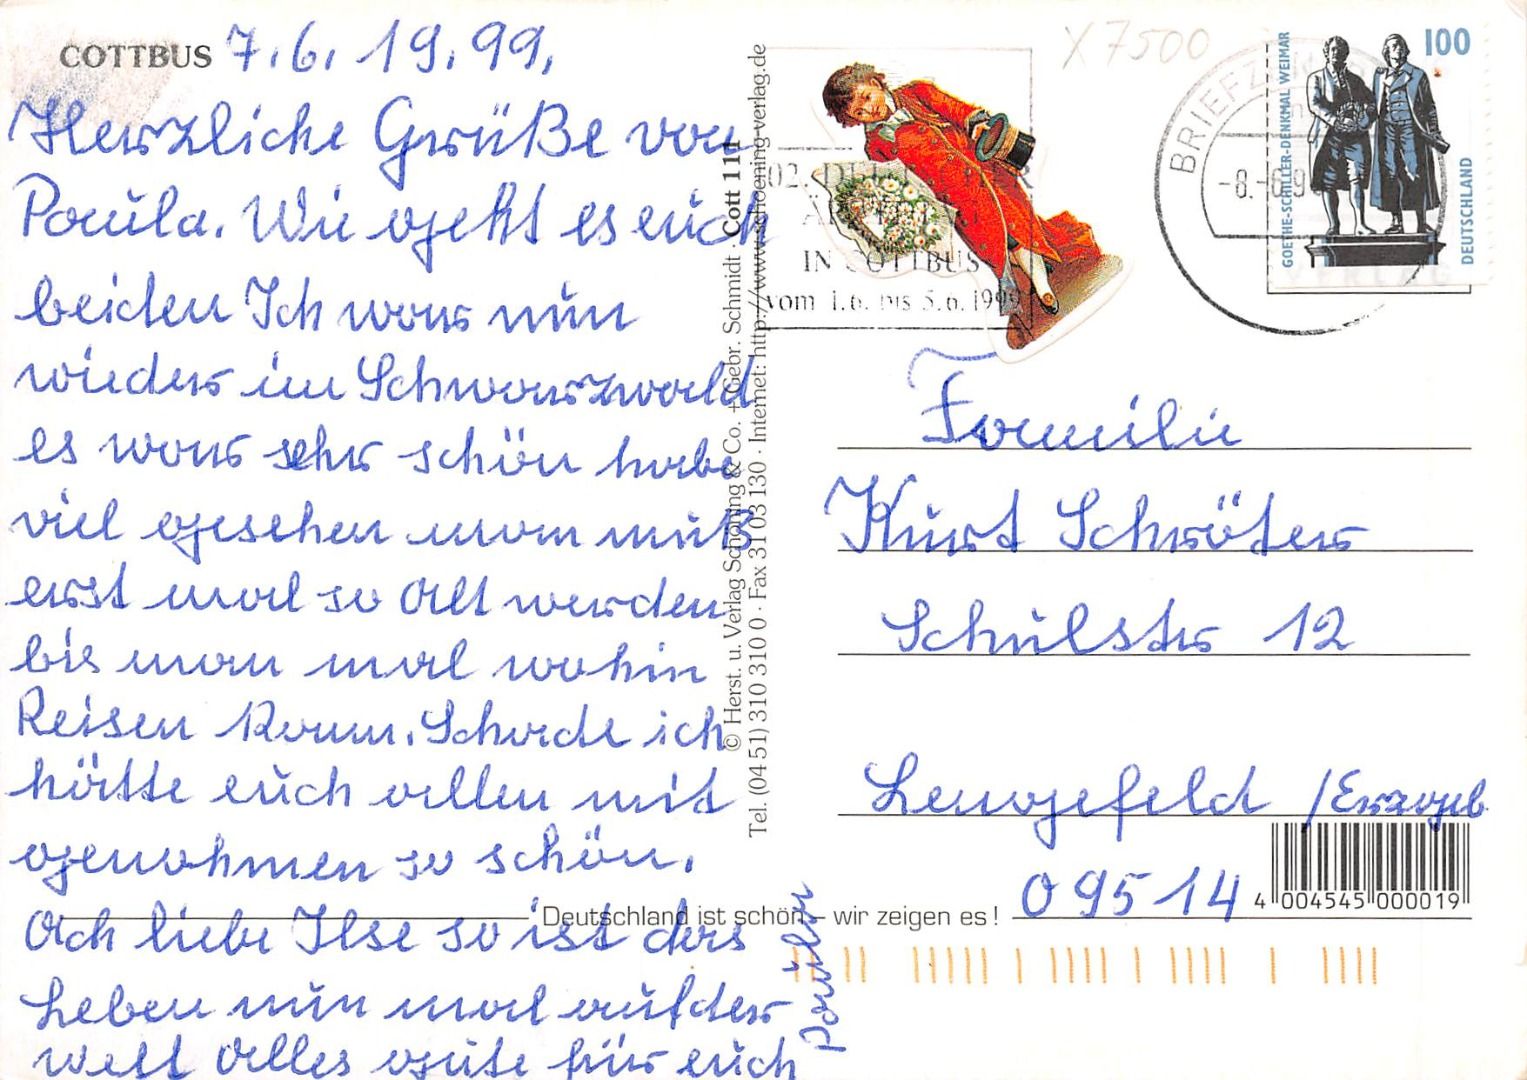 COTTBUS 7.6.19.99.
Herzliche Grüße von
Paula. Wie geht es euch
beiden Ich war nun
wieder im Schwarzwald
es war sehr schön habe
viel gesehen man muß
erst mal so Alt werden
bis man mal wohin
Reisen kann. Schade ich
hätte euch allen mit
genohmen so schön.
Ach liebe Ilse so ist das
Leben nun mal auf der
Welt Alles gute für euch
Paula
© Herst. u. Verlag Schöning & Co. + Gebr. Schmidt · Cott 111
Tel. (04 51) 310 310 0 · Fax 31 03 130 · Internet: http://www.schoening-verlag.de
X 7500
IN COTTBUS
vom 1.6. bis 5.6.1999
BRIEFZ
-8.-6.9
GOETHE-SCHILLER-DENKMAL WEIMAR
100
DEUTSCHLAND
Familie
Kurt Schröter
Schulstr 12
Lengefeld /Erzgeb
09514
4 004545 000019
Deutschland ist schön – wir zeigen es!